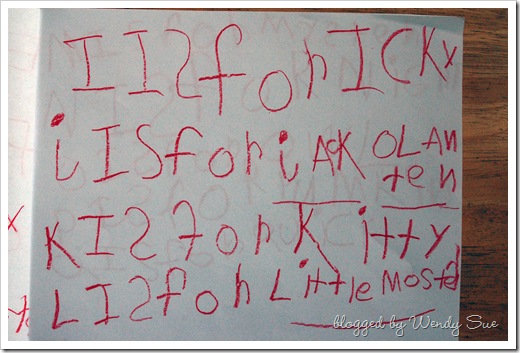 I IS for ICKy
j IS for jACK OLAN
ten
K IS for Kitty
L IS for Little
blogged by Wendy Sue